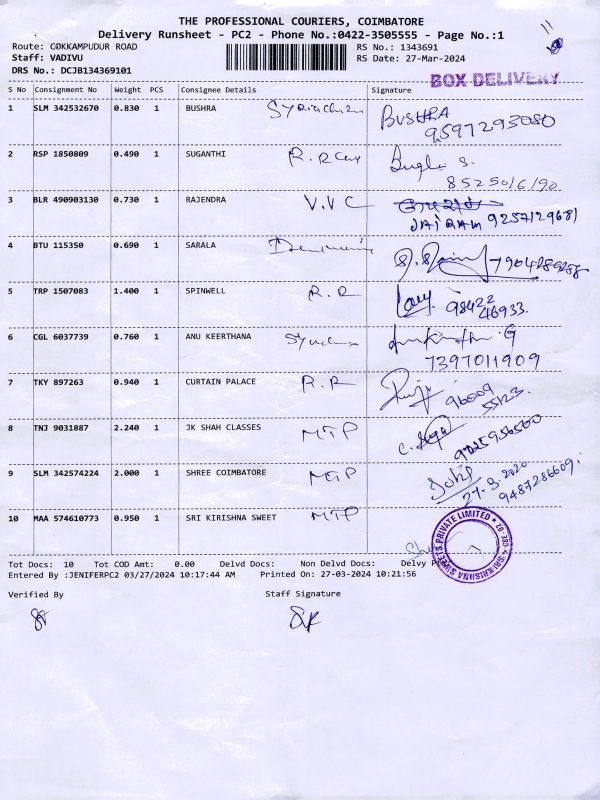 THE PROFESSIONAL COURIERS, COIMBATORE
Delivery Runsheet - PC2 - Phone No.:0422-3505555 - Page No.:1
11
Route: COKKAMPUDUR ROAD RS No.: 1343691
Staff: VADIVU RS Date: 27-Mar-2024
DRS No.: DCJB134369101
BOX DELIVERY
S No Consignment No Weight PCS Consignee Details Signature
1 SLM 342532670 0.830 1 BUSHRA BUSHRA
9597293080
2 RSP 1850809 0.490 1 SUGANTHI R.R S.
8525016190
3 BLR 490903130 0.730 1 RAJENDRA V.V C
JAIRAM 9257129681
4 BTU 115350 0.690 1 SARALA
5 TRP 1507083 1.400 1 SPINWELL R.R 98422
46933.
6 CGL 6037739 0.760 1 ANU KEERTHANA G
7397011909
7 TKY 897263 0.940 1 CURTAIN PALACE R.R 96009
55123.
8 TNJ 9031887 2.240 1 JK SHAH CLASSES MTP
9 SLM 342574224 2.000 1 SHREE COIMBATORE MTP
27.3.2020
9487286609.
10 MAA 574610773 0.950 1 SRI KIRISHNA SWEET MTP
SRI KRISHNA SWEETS PRIVATE LIMITED CBE-02
Tot Docs: 10 Tot COD Amt: 0.00 Delvd Docs: Non Delvd Docs: Delvy
Entered By :JENIFERPC2 03/27/2024 10:17:44 AM Printed On: 27-03-2024 10:21:56
Verified By Staff Signature